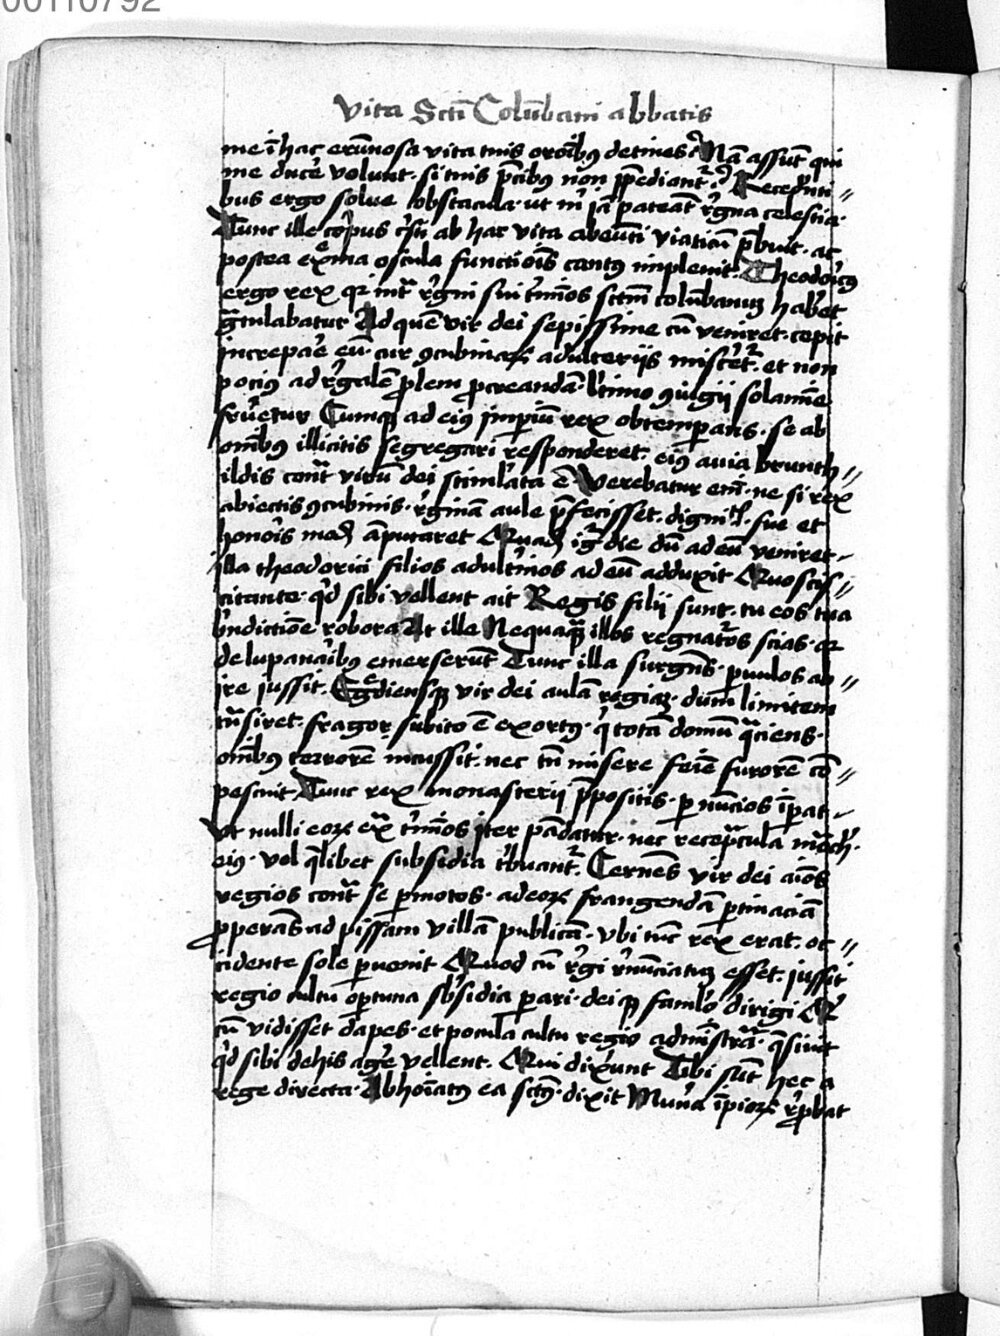 00110792
Vita Scti Colūbani abbatis
me ī hac erūnosa vita tuis orōibꝰ detines Nā assūt qui
me ducē volunt · si tuis p̄cibꝰ non īpediant᷑ · Recedēti//
bus ergo solue obstacula · ut m̄ iā pateāt rēgna celestia ·
Tunc ille corpus cristi ab hac vita abeūti viaticū p̄buit · ac
postea extrema oscula functiōis cantꝰ impleuit · Theodoricꝰ
ergo rex qꝛ int᷑ rēgni sui t᷑mīos sctm̄ colūbanuꝫ habēt
gratulabatur Ad quē vir dei sepissime cū veniret · cepit
increpaē eū · cur ꝯcubinaꝝ adulteriis miscēt᷑ · et non
pociꝰ ad rēgalē ꝓlem ꝓcreandā · l᷑timo ꝯiugii solamīe
frueretur Cumqꝫ ad eiꝰ imꝑiū rex obtemꝑans · se ab
om̄ibꝰ illicitis segregari responderet · eiꝰ auia brunih//
ildis cont᷑ virū dei stimulata ē · Verebatur em̄ · ne si rex
abiectis ꝯcubinis · rēginā aule p̄fecisset · dignitꝭ · sue et
honoris modū āputaret Quadā igr̄ die dū ad eū veniret ·
illa theodorici filios adult᷑inos ad eū adduxit Quo scis//
citante · qd̄ sibi vellent ait Regis filii sunt · tu eos tua
bn̄dictiōe robora At ille Nequaqꝫ illos regnatu᷑os scias · qꝛ
de lupanaribꝰ emerserūt Tunc illa surgēs · ꝑuulos ab//
ire iussit · Egrediensqꝫ vir dei aulā regiaꝫ · dum limitem
trāsiret · fragor subito ē exortꝰ · qͥ totā domū quaciens ·
om̄ibꝰ terrorē incussit · nec tn̄ misere feīe furorē cō//
pescuit Tunc rex monasterii p̄positis · ꝑ nūcios īperat//
Vt nulli eoꝝ ext᷑ t᷑mīos iter pādatur · nec receptacula mōch̄ ·
eiꝰ · vel qͣlibet subsidia t᷑buant᷑ · Cernēs vir dei aīos
regios cont᷑ se ꝑmotos · ad eoꝝ frangendā ꝑtinaciā
ꝓperās ad pissam villā publicā · vbi tūc rex erat · oc//
cidente sole ꝑuenit Quod cū rēgi rēnūciatuꝫ esset · iussit
regio cultu oportuna sb̄sidia ꝑari · deiqꝫ famulo dirigi Qͥ
cū vidisset dapes · et pocula cultu regio admīstra᷑ · q̄siuit
qd̄ sibi de his agēe vellent · Qui dixerunt Tibi sūt hec a
rege directa · Abhoīatꝰ ea sctꝰ · dixit Munera īpioꝝ reꝓbat